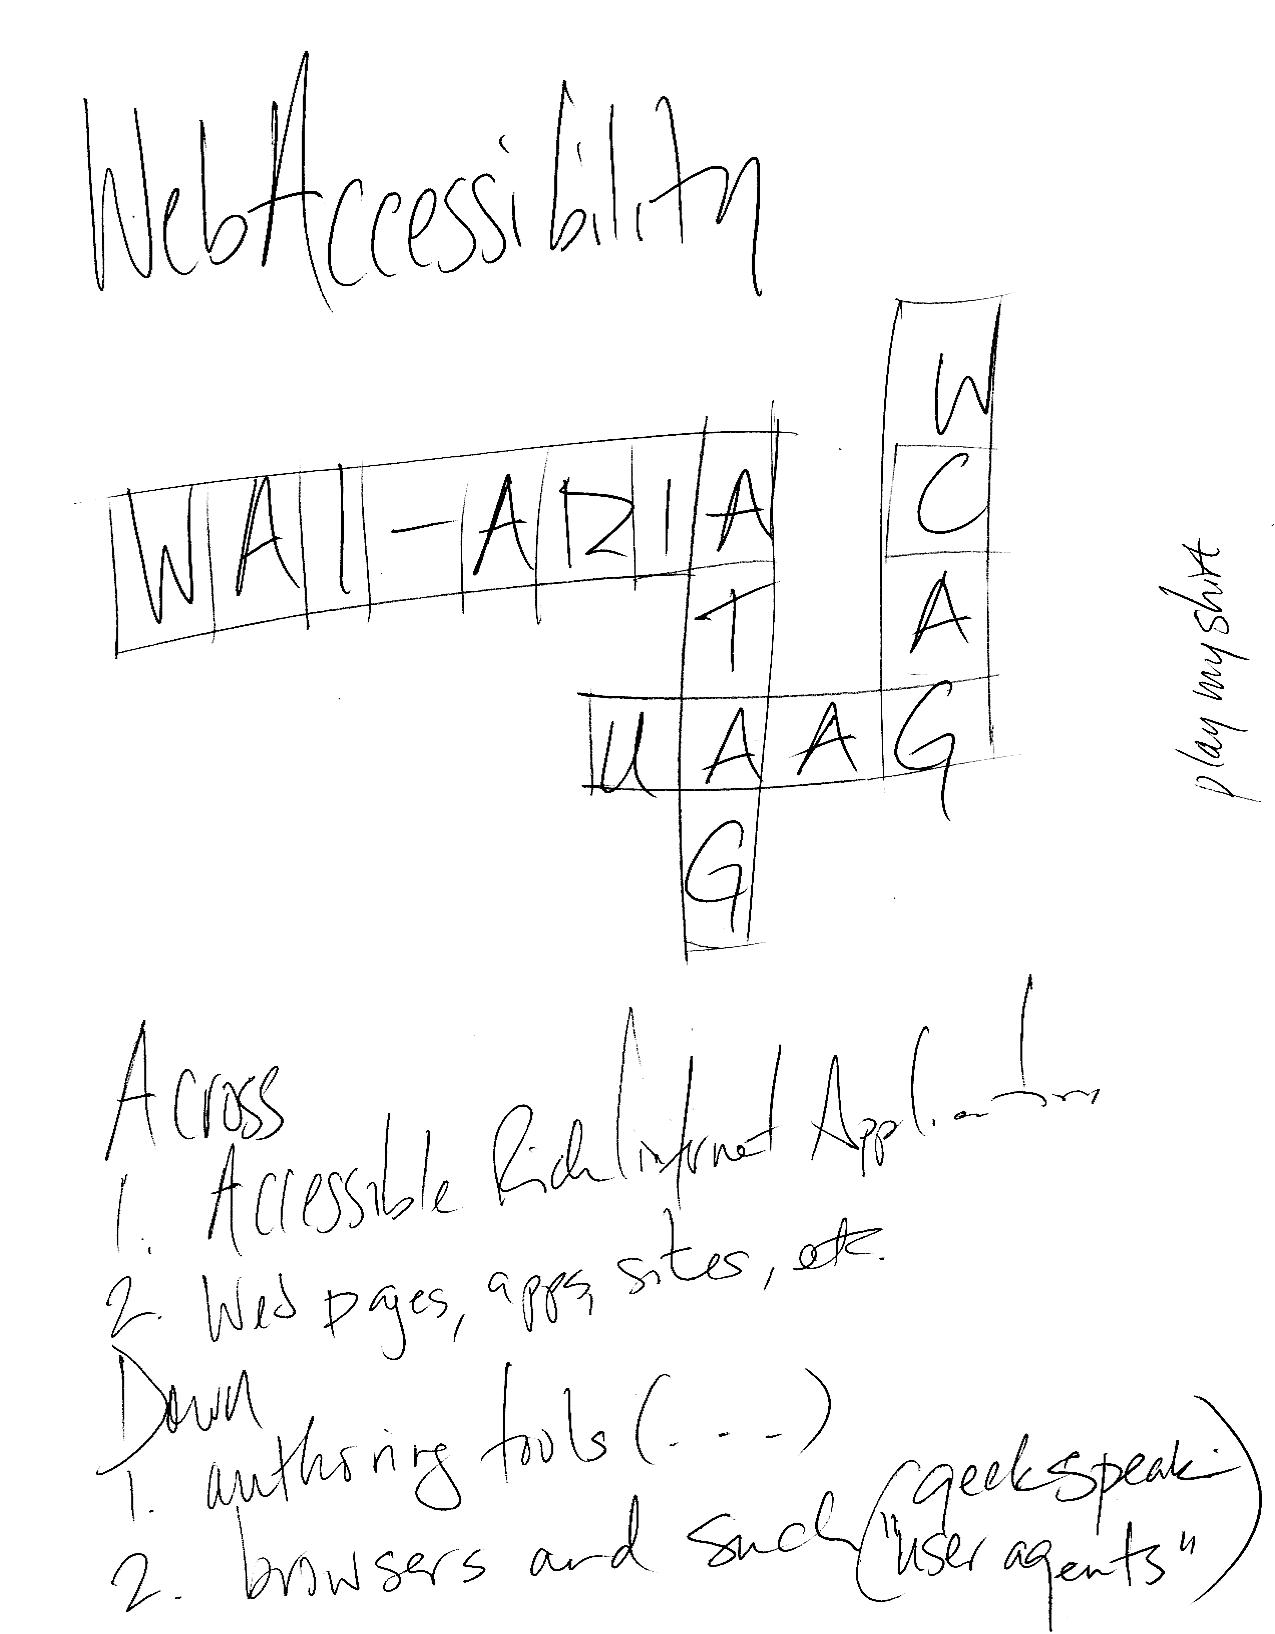 WebAccessibility
W
C
WAI-ARIA
T
A
UAAG
G
play my shirt
Across
1. Accessible Rich Internet Applications
2. Web pages, apps, sites, etc.
Down
1. authoring tools (...)
2. browsers and such (geekspeak:
"user agents")